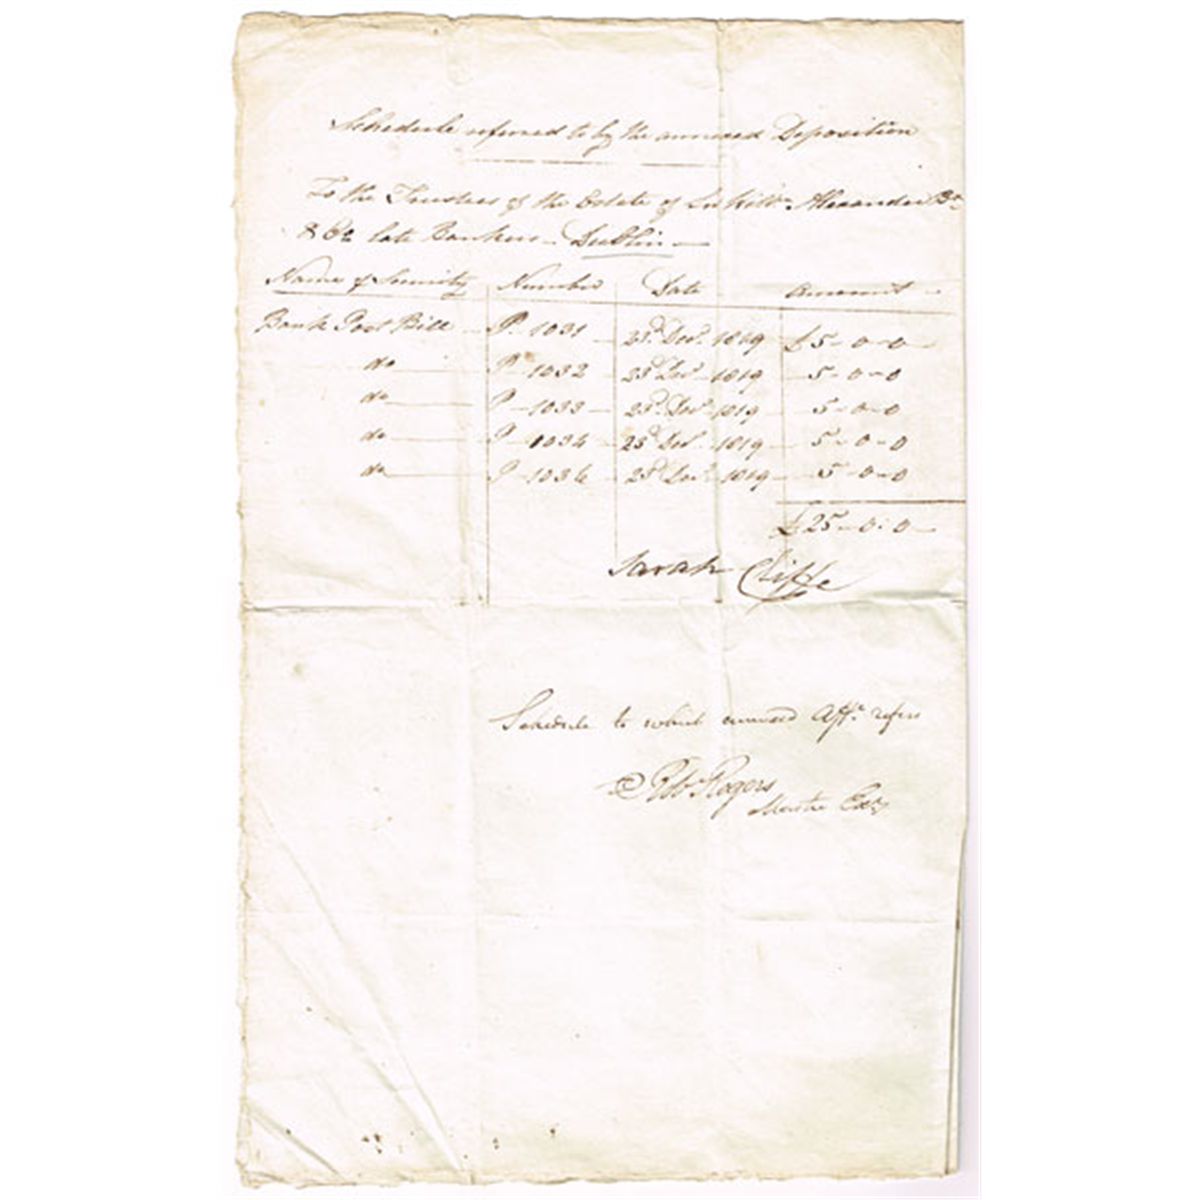 Schedule referred to by the annexed Deposition
To the Trustees of the Estate of Sir Willm Alexander Bt
& Co late Bankers - Dublin -
Name of Security Number Date Amount -
Bank Post Bill - P. 1031 - 23d Decr. 1819 - £5-0-0
do - P - 1032 - 23d Decr - 1819 - 5-0-0
do - P - 1033 - 23d. Decr - 1819 - 5-0-0
do - P - 1034 - 23d Decr - 1819 - 5-0-0
do - P - 1036 - 23d Decr - 1819 - 5-0-0
£25-0-0-
Sarah Cliffe
Schedule to which annexed Afft. refers
Rogers